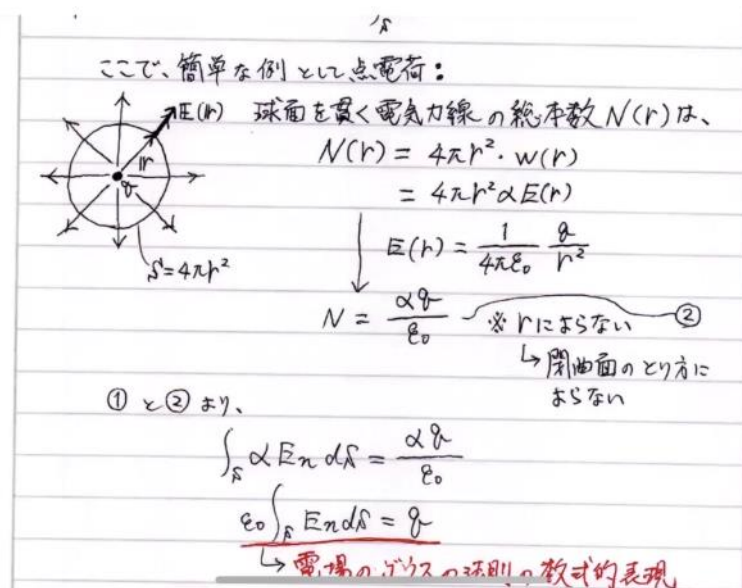 ここで、簡単な例として点電荷:
E(r) 球面を貫く電気力線の総本数 N(r) は、
r
q
S=4πr²
N(r) = 4πr²・w(r)
= 4πr²αE(r)
E(r) = 1/4πε₀ q/r²
N = αq/ε₀ ※ rによらない ②
↳ 閉曲面のとり方に
よらない
①と②より、
∫s αEn dS = αq/ε₀
ε₀∫s En dS = q
↳ 電場のガウスの法則の数式的表現